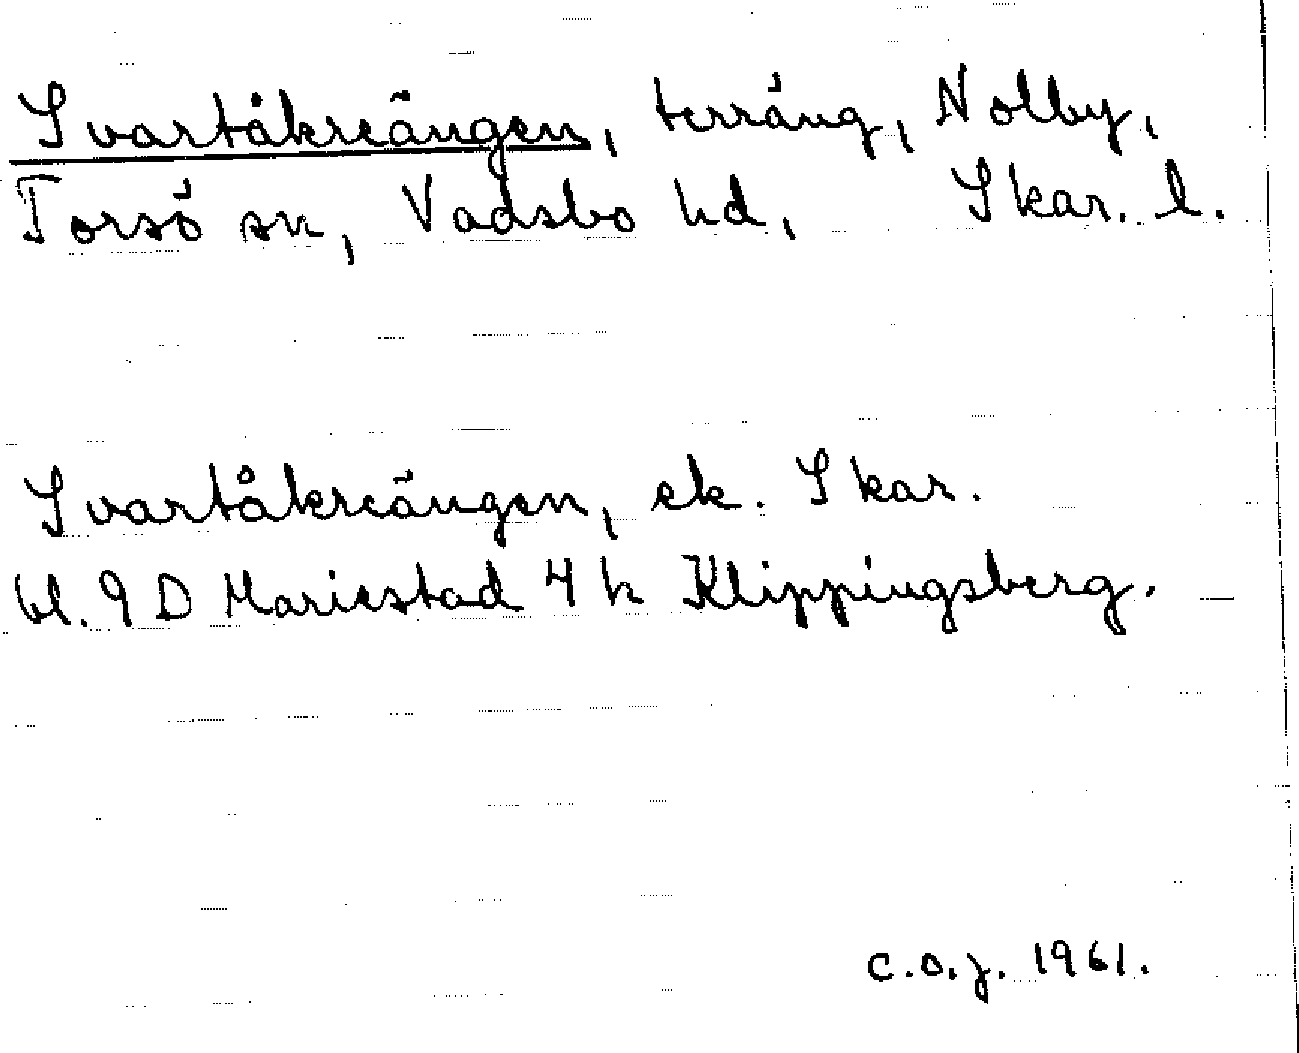 Svartåkreängen, terräng, Nolby,
Torsö sn, Vadsbo hd, Skar. l.
Svartåkreängen, ek. Skar.
bl. 9 D Mariestad 4 h Klippingsberg.
C.O.J. 1961.